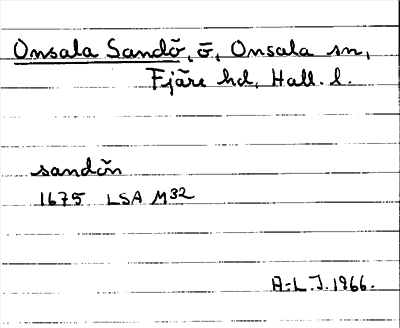 Onsala Sandö, ö, Onsala sn,
Fjäre hd, Hall. l.
sandön
1675 LSA M32
A-L.J. 1966.